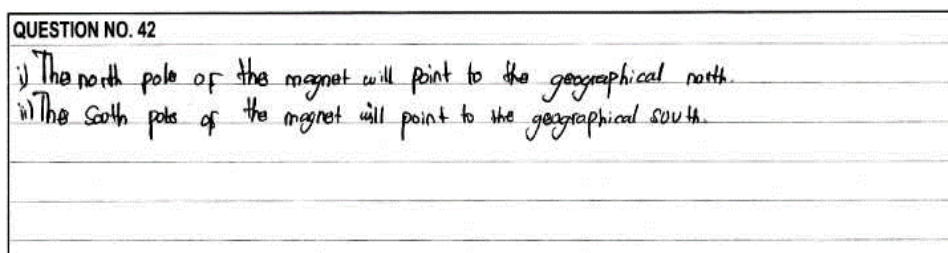 QUESTION NO. 42
i) The north pole of the magnet will point to the geographical north.
ii) The South pole of the magnet will point to the geographical south.